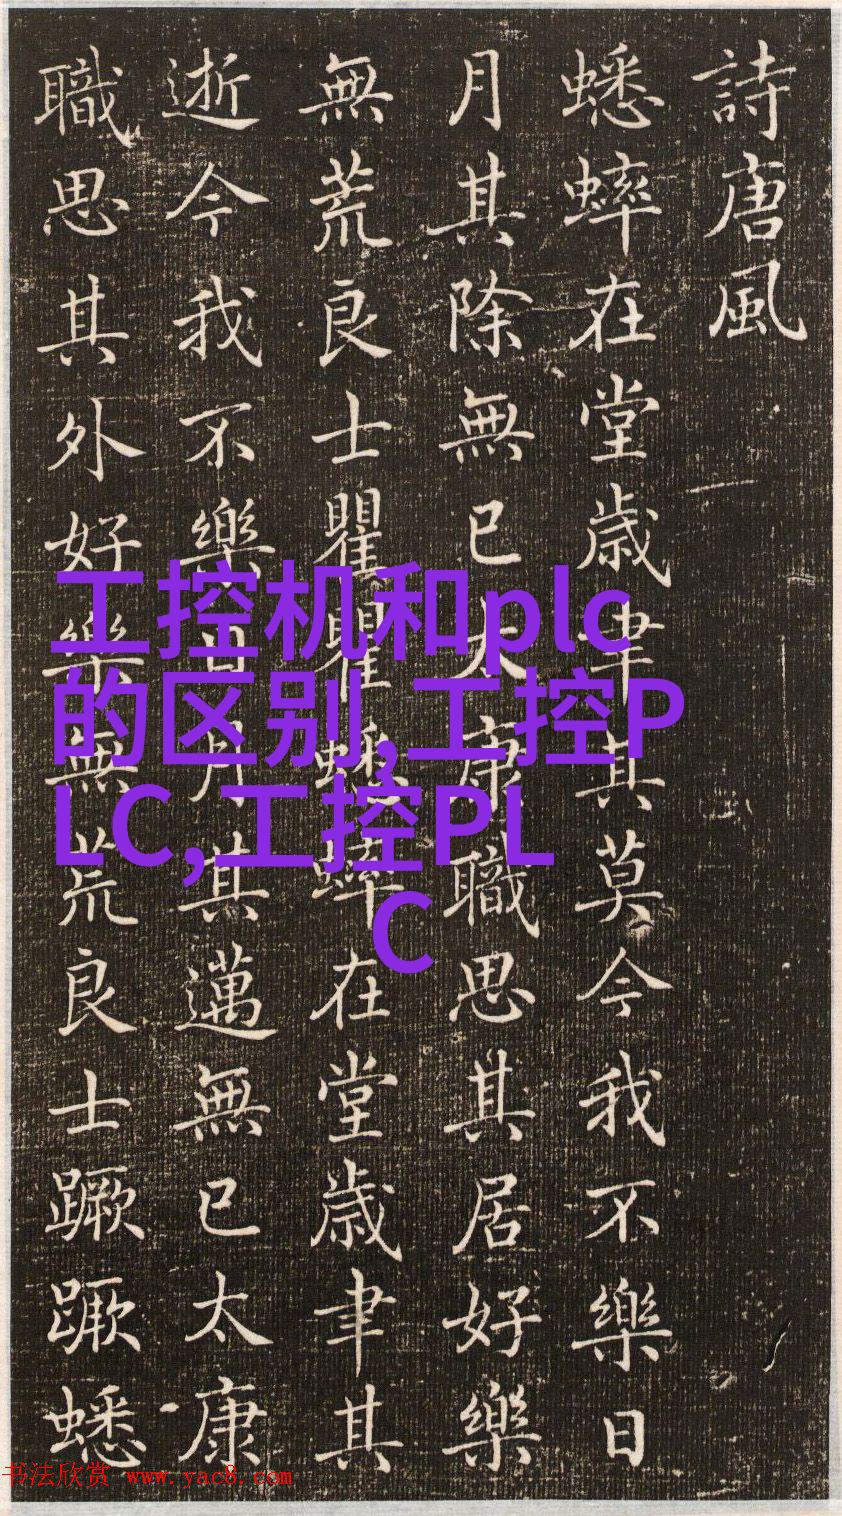 詩唐風
蟋蟀在堂歳聿其莫今我不樂日
月其除無已太康職思其居好樂
無荒良士瞿瞿蟋蟀在堂歳聿其
逝今我不樂日月其邁無已太康
職思其外好樂無荒良士蹶蹶蟋
工控机和plc
的区别,工控P
LC,工控PL
C
书法欣赏 www.yac8.com